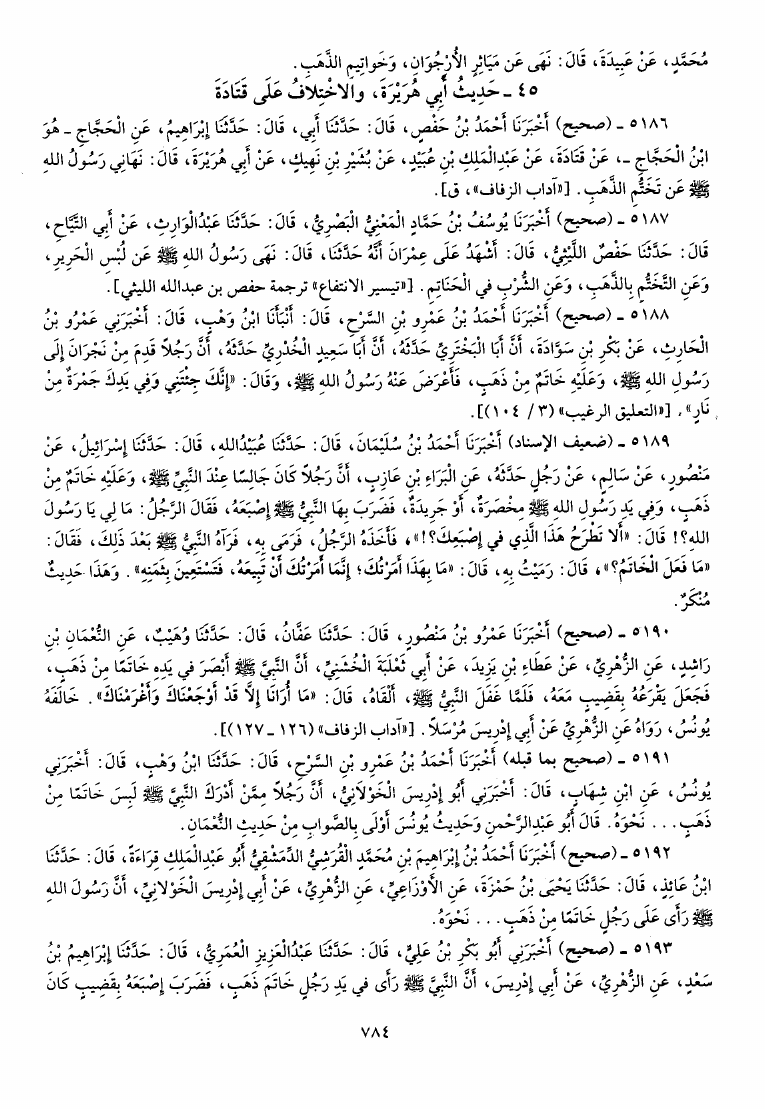 مُحَمَّدٍ، عَنْ عَبِيدَةَ، قَالَ: نَهَى عَن مَيَاثِرِ الأُرْجُوَانِ، وَخَوَاتِيمِ الذَّهَبِ.
٤٥ ـ حَدِيثُ أَبِي هُرَيْرَةَ، والاخْتِلافُ عَلَى قَتَادَةَ
٥١٨٦ ـ (صحيح) أَخْبَرَنَا أَحْمَدُ بْنُ حَفْصٍ، قَالَ: حَدَّثَنَا أَبِي، قَالَ: حَدَّثَنَا إِبْرَاهِيمُ، عَنِ الْحَجَّاجِ ـ هُوَ
ابْنُ الْحَجَّاجِ ـ، عَنْ قَتَادَةَ، عَنْ عَبْدِالْمَلِكِ بْنِ عُبَيْدٍ، عَنْ بُشَيْرِ بْنِ نَهِيكٍ، عَنْ أَبِي هُرَيْرَةَ، قَالَ: نَهَانِي رَسُولُ اللهِ
ﷺ عَن تَخَتُّمِ الذَّهَبِ. [«آداب الزفاف»، ق].
٥١٨٧ ـ (صحيح) أَخْبَرَنَا يُوسُفُ بْنُ حَمَّادٍ الْمَعْنِيُّ الْبَصْرِيُّ، قَالَ: حَدَّثَنَا عَبْدُالْوَارِثِ، عَنْ أَبِي التَّيَّاحِ،
قَالَ: حَدَّثَنَا حَفْصٌ اللَّيْثِيُّ، قَالَ: أَشْهَدُ عَلَى عِمْرَانَ أَنَّهُ حَدَّثَنَا، قَالَ: نَهَى رَسُولُ اللهِ ﷺ عَن لُبْسِ الْحَرِيرِ،
وَعَنِ التَّخَتُّمِ بِالذَّهَبِ، وَعَنِ الشُّرْبِ في الْحَنَاتِمِ. [«تيسير الانتفاع» ترجمة حفص بن عبدالله الليثي].
٥١٨٨ ـ (صحيح) أَخْبَرَنَا أَحْمَدُ بْنُ عَمْرِو بْنِ السَّرْحِ، قَالَ: أَنْبَأَنَا ابْنُ وَهْبٍ، قَالَ: أَخْبَرَنِي عَمْرُو بْنُ
الْحَارِثِ، عَنْ بَكْرِ بْنِ سَوَادَةَ، أَنَّ أَبَا الْبَخْتَرِيِّ حَدَّثَهُ، أَنَّ أَبَا سَعِيدٍ الْخُدْرِيَّ حَدَّثَهُ، أَنَّ رَجُلاً قَدِمَ مِنْ نَجْرَانَ إِلَى
رَسُولِ اللهِ ﷺ، وَعَلَيْهِ خَاتَمٌ مِنْ ذَهَبٍ، فَأَعْرَضَ عَنْهُ رَسُولُ اللهِ ﷺ، وَقَالَ: «إِنَّكَ جِئْتَنِي وَفِي يَدِكَ جَمْرَةٌ مِنْ
نَارٍ». [«التعليق الرغيب» (٣/ ١٠٤)].
٥١٨٩ ـ (ضعيف الإسناد) أَخْبَرَنَا أَحْمَدُ بْنُ سُلَيْمَانَ، قَالَ: حَدَّثَنَا عُبَيْدُاللهِ، قَالَ: حَدَّثَنَا إِسْرَائِيلُ، عَنْ
مَنْصُورٍ، عَنْ سَالِمٍ، عَنْ رَجُلٍ حَدَّثَهُ، عَنِ الْبَرَاءِ بْنِ عَازِبٍ، أَنَّ رَجُلاً كَانَ جَالِسًا عِنْدَ النَّبِيِّ ﷺ، وَعَلَيْهِ خَاتَمٌ مِنْ
ذَهَبٍ، وَفِي يَدِ رَسُولِ اللهِ ﷺ مِخْصَرَةٌ، أَوْ جَرِيدَةٌ، فَضَرَبَ بِهَا النَّبِيُّ ﷺ إِصْبَعَهُ، فَقَالَ الرَّجُلُ: مَا لِي يَا رَسُولَ
اللهِ؟! قَالَ: «أَلَا تَطْرَحُ هَذَا الَّذِي فِي إِصْبَعِكَ؟!»، فَأَخَذَهُ الرَّجُلُ، فَرَمَى بِهِ، فَرَآهُ النَّبِيُّ ﷺ بَعْدَ ذَلِكَ، فَقَالَ:
«مَا فَعَلَ الْخَاتَمُ؟»، قَالَ: رَمَيْتُ بِهِ، قَالَ: «مَا بِهَذَا أَمَرْتُكَ؛ إِنَّمَا أَمَرْتُكَ أَنْ تَبِيعَهُ، فَتَسْتَعِينَ بِثَمَنِهِ». وَهَذَا حَدِيثٌ
مُنْكَرٌ.
٥١٩٠ ـ (صحيح) أَخْبَرَنَا عَمْرُو بْنُ مَنْصُورٍ، قَالَ: حَدَّثَنَا عَفَّانُ، قَالَ: حَدَّثَنَا وُهَيْبٌ، عَنِ النُّعْمَانِ بْنِ
رَاشِدٍ، عَنِ الزُّهْرِيِّ، عَنْ عَطَاءِ بْنِ يَزِيدَ، عَنْ أَبِي ثَعْلَبَةَ الْخُشَنِيِّ، أَنَّ النَّبِيَّ ﷺ أَبْصَرَ فِي يَدِهِ خَاتَمًا مِنْ ذَهَبٍ،
فَجَعَلَ يَقْرَعُهُ بِقَضِيبٍ مَعَهُ، فَلَمَّا غَفَلَ النَّبِيُّ ﷺ، أَلْقَاهُ، قَالَ: «مَا أُرَانَا إِلاَّ قَدْ أَوْجَعْنَاكَ وَأَغْرَمْنَاكَ». خَالَفَهُ
يُونُسُ، رَوَاهُ عَنِ الزُّهْرِيِّ عَنْ أَبِي إِدْرِيسَ مُرْسَلاً. [«آداب الزفاف» (١٢٦ ـ ١٢٧)].
٥١٩١ ـ (صحيح بما قبله) أَخْبَرَنَا أَحْمَدُ بْنُ عَمْرِو بْنِ السَّرْحِ، قَالَ: حَدَّثَنَا ابْنُ وَهْبٍ، قَالَ: أَخْبَرَنِي
يُونُسُ، عَنِ ابْنِ شِهَابٍ، قَالَ: أَخْبَرَنِي أَبُو إِدْرِيسَ الْخَوْلاَنِيُّ، أَنَّ رَجُلاً مِمَّنْ أَدْرَكَ النَّبِيَّ ﷺ لَبِسَ خَاتَمًا مِنْ
ذَهَبٍ... نَحْوَهُ. قَالَ أَبُو عَبْدِالرَّحْمنِ وَحَدِيثُ يُونُسَ أَوْلَى بِالصَّوَابِ مِنْ حَدِيثِ النُّعْمَانِ.
٥١٩٢ ـ (صحيح) أَخْبَرَنَا أَحْمَدُ بْنُ إِبْرَاهِيمَ بْنِ مُحَمَّدٍ الْقُرَشِيُّ الدِّمَشْقِيُّ أَبُو عَبْدِالْمَلِكِ قِرَاءَةً، قَالَ: حَدَّثَنَا
ابْنُ عَائِذٍ، قَالَ: حَدَّثَنَا يَحْيَى بْنُ حَمْزَةَ، عَنِ الأَوْزَاعِيِّ، عَنِ الزُّهْرِيِّ، عَنْ أَبِي إِدْرِيسَ الْخَوْلانِيِّ، أَنَّ رَسُولَ اللهِ
ﷺ رَأَى عَلَى رَجُلٍ خَاتَمًا مِنْ ذَهَبٍ... نَحْوَهُ.
٥١٩٣ ـ (صحيح) أَخْبَرَنِي أَبُو بَكْرِ بْنُ عَلِيٍّ، قَالَ: حَدَّثَنَا عَبْدُالْعَزِيزِ الْعُمَرِيُّ، قَالَ: حَدَّثَنَا إِبْرَاهِيمُ بْنُ
سَعْدٍ، عَنِ الزُّهْرِيِّ، عَنْ أَبِي إِدْرِيسَ، أَنَّ النَّبِيَّ ﷺ رَأَى في يَدِ رَجُلٍ خَاتَمَ ذَهَبٍ، فَضَرَبَ إِصْبَعَهُ بِقَضِيبٍ كَانَ
٧٨٤